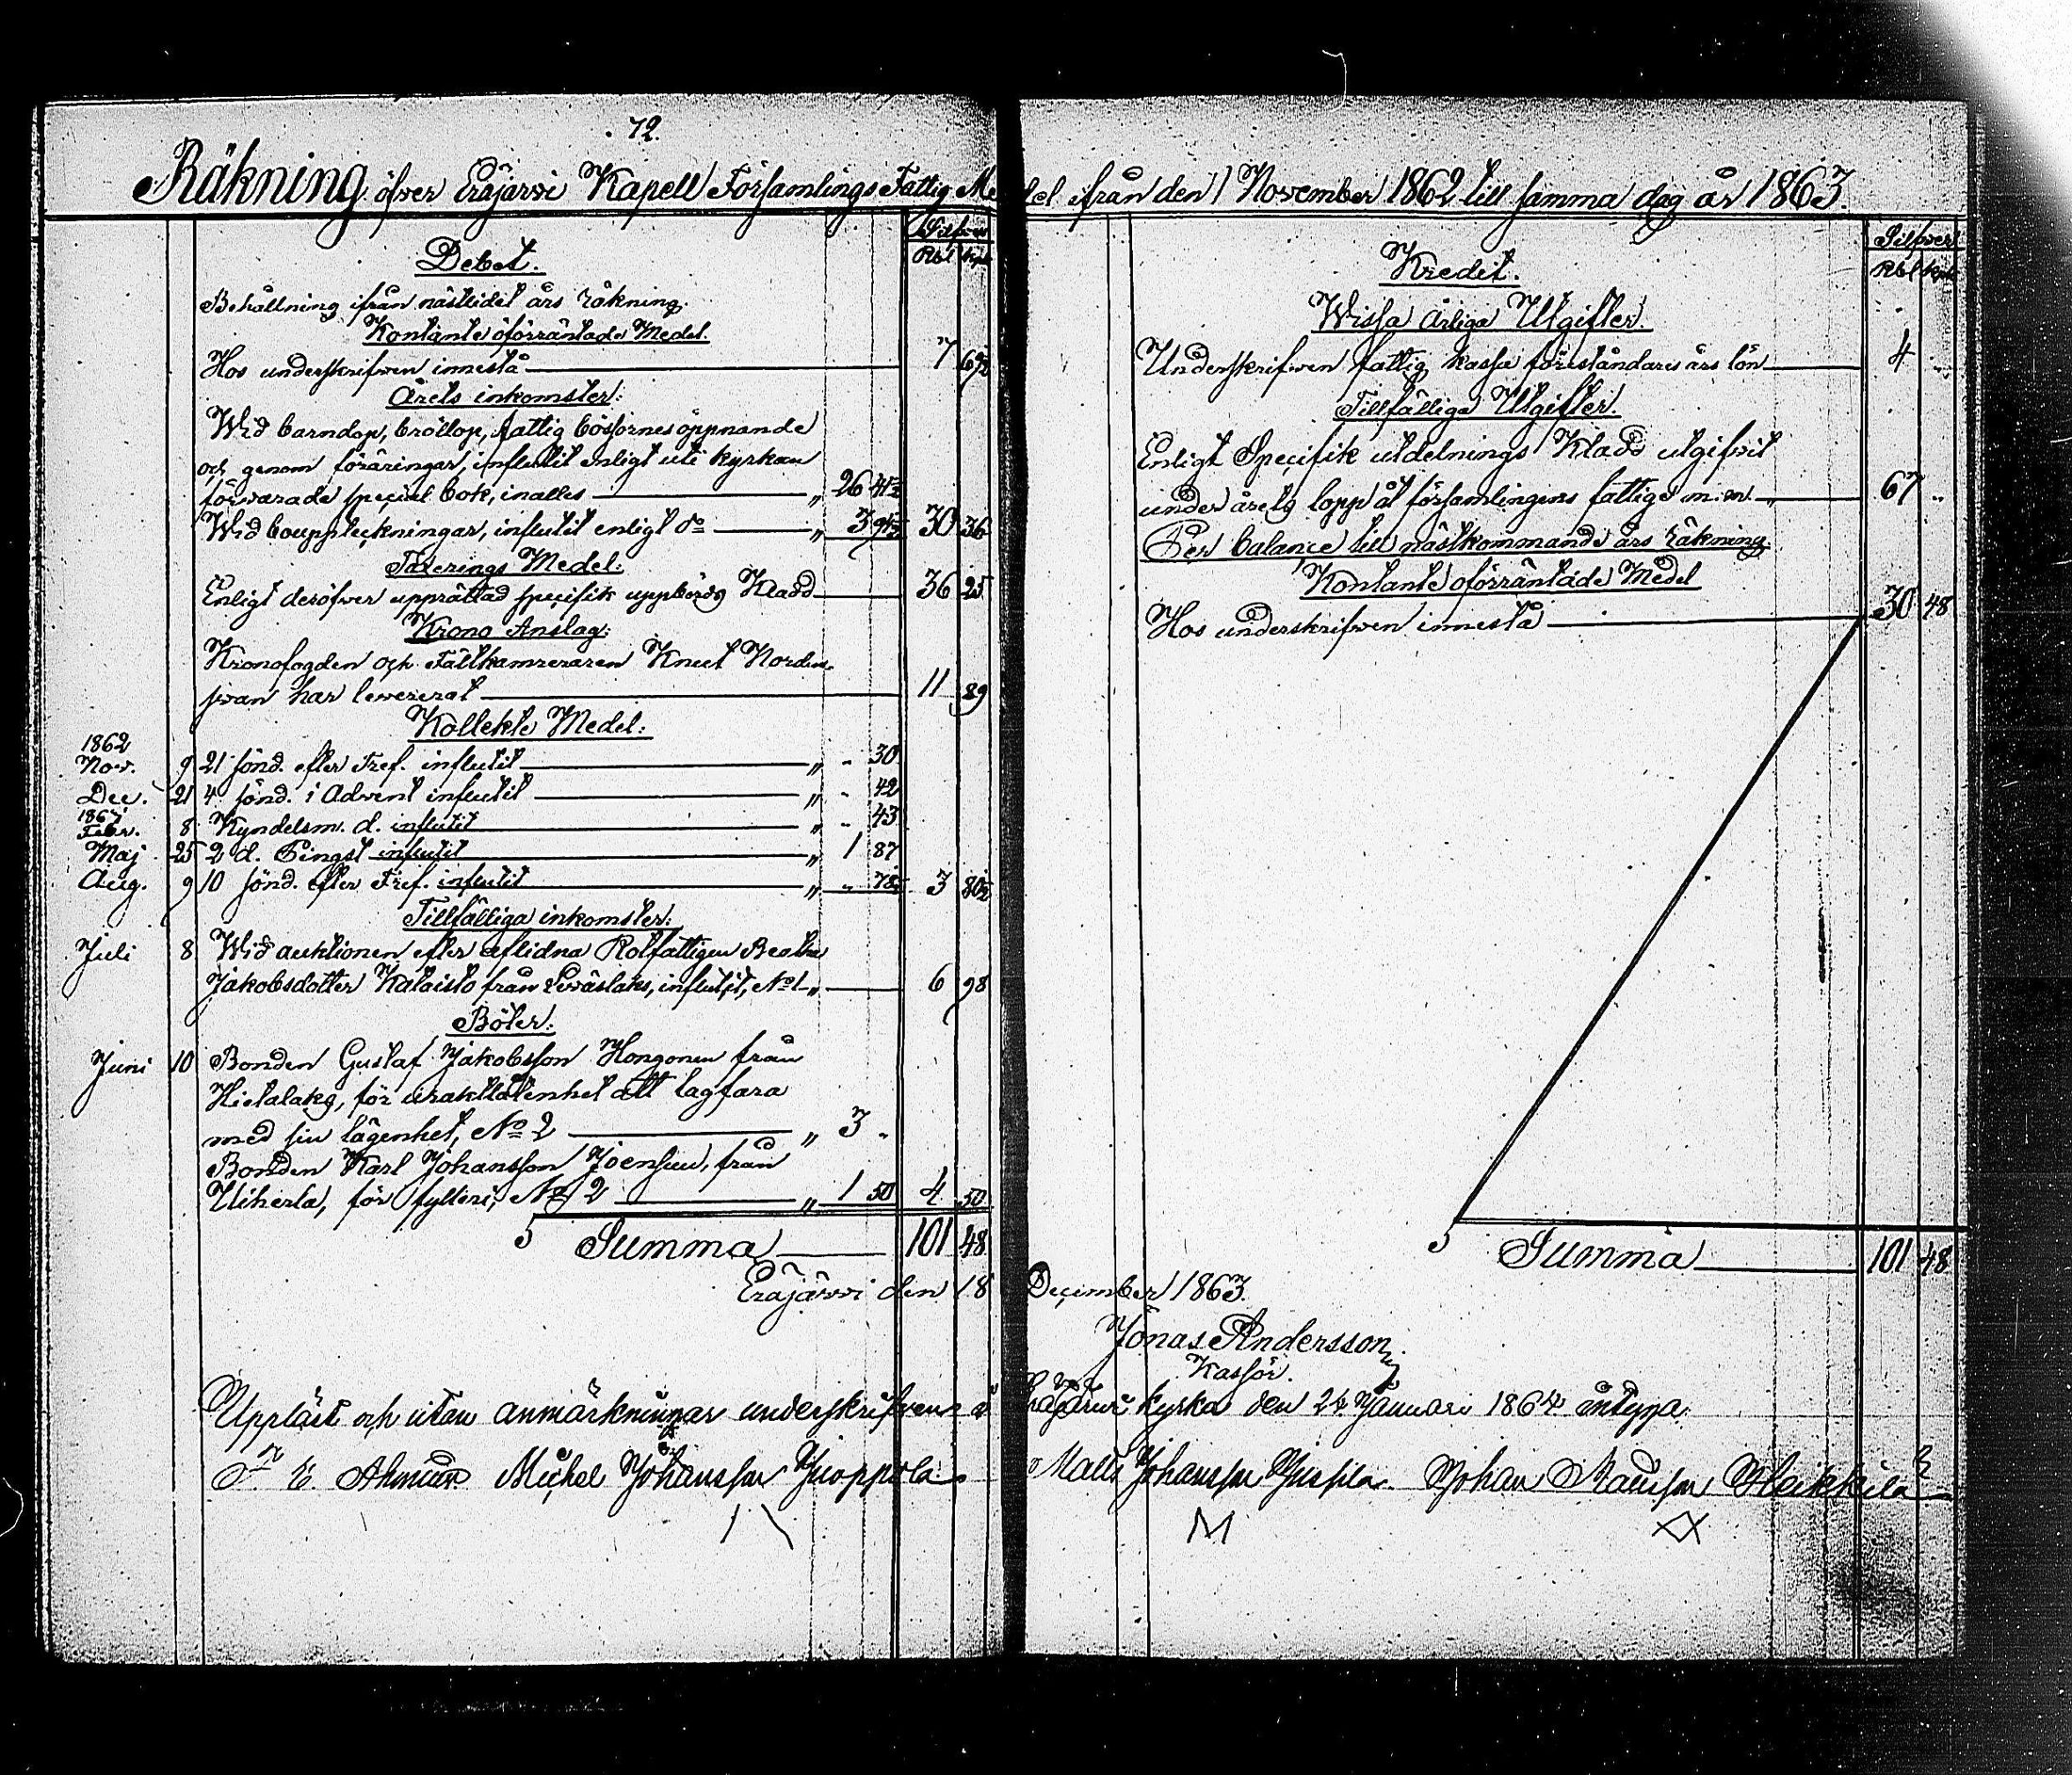 72.
Räkning öfver Eräjärvi Kapell Församlings Fattig Medel ifrån den 1 November 1862 till samma dag år 1863.
Silfver
Rbl Kpk
Debet.
Behållning ifrån nästledet års räkning.
Kontante oförräntade Medel.
Hos underskrifven innestå 7 69½
Årets inkomster:
Wid barndop, bröllop, fattig bössornes öppnande
och genom föräringar, influtit enligt uti kyrkan
förvarade special bok, inalles " 26 41½
Wid bouppteckningar, influtit enligt do " 3 94½ 30 36
Taxerings Medel:
Enligt deröfver upprättad specifik uppbörds Kladd 36 25
Krono Anslag:
Kronofogden och Fältkamreraren Knut Norden-
svan har levererat 11 89
Kollekte Medel:
1862
Nov. 9 21 sönd. efter Tref. influtit " - 30
Dec. 21 4 sönd. i Advent influtit " - 42
1863
Febr. 8 Kyndelsm. d. influtit " - 43
Maj 25 2 d. Pingst influtit " 1 87
Aug. 9 10 sönd. efter Tref. influtit " - 78½ 3 80½
Tillfälliga inkomster:
Juli 8 Wid auktionen efter aflidna Rotfattigen Beata
Jakobsdotter Kalaisto från Leväslaks, influtit, No 1 " 6 98
Böter:
Juni 10 Bonden Gustaf Jakobsson Hongonen från
Hietalaks, för uraktlåtenhet att lagfara
med sin lägenhet, No 2 " 3 "
Bonden Karl Johansson Joensuu, från
Uiherla, för fylleri, No 2 " 1 50 4 50
Summa 101 48
Eräjärvi den 18 December 1863.
Silfver
Rbl Kpk
Kredit.
Wissa årliga Utgifter.
Underskrifven fattig kassa föreståndares års lön 4 "
Tillfälliga Utgifter.
Enligt Specifik utdelnings Kladd utgifvit
under årets lopp åt församlingens fattige m. m. " 67 "
Per balance till nästkommande års räkning.
Kontante oförräntade Medel
Hos underskrifven innestå 30 48
Summa 101 48
Jonas Andersson
Kassör.
Uppläst och utan anmärkningar underskrifven i Eräjärvi kyrka den 24 Januari 1864 intyga
Michel Johansson Juoppola Matts Johansson Jussila. Johan Heikkilä